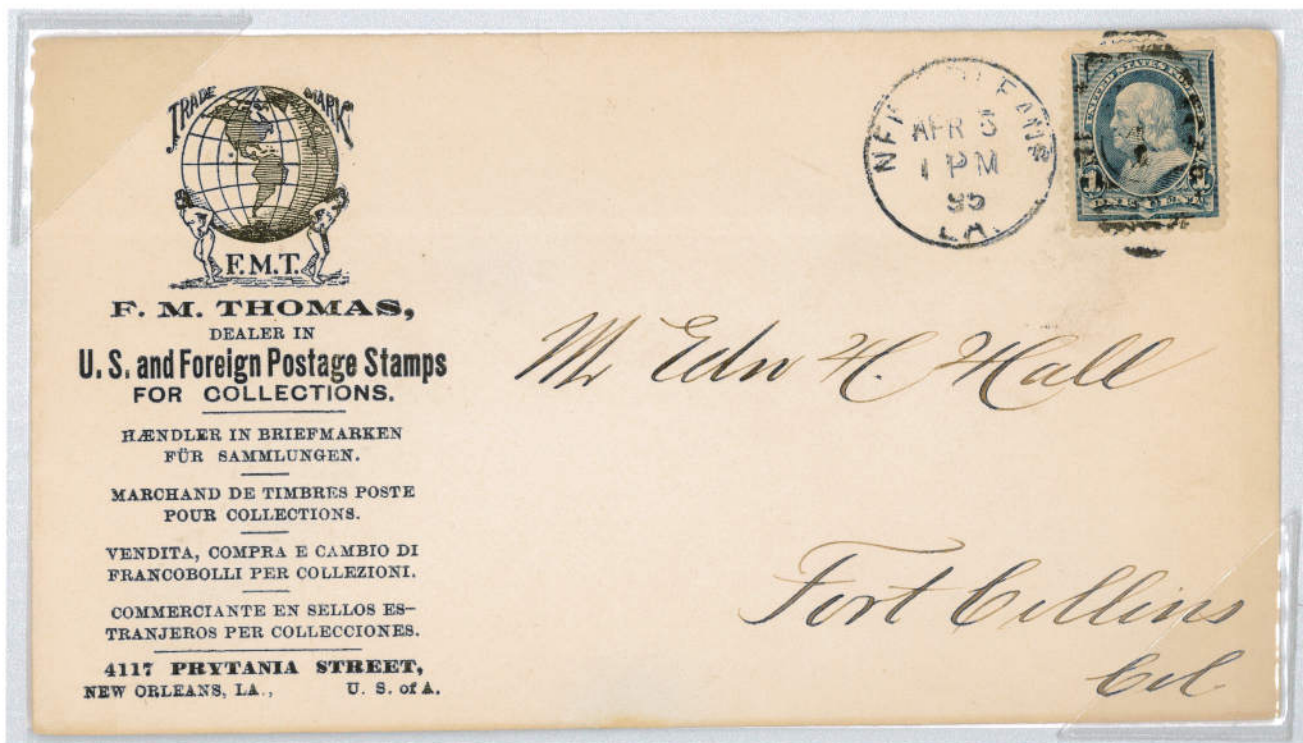 TRADE MARK
F.M.T.
F. M. THOMAS,
DEALER IN
U. S. and Foreign Postage Stamps
FOR COLLECTIONS.
HÆNDLER IN BRIEFMARKEN
FÜR SAMMLUNGEN.
MARCHAND DE TIMBRES POSTE
POUR COLLECTIONS.
VENDITA, COMPRA E CAMBIO DI
FRANCOBOLLI PER COLLEZIONI.
COMMERCIANTE EN SELLOS ES-
TRANJEROS PER COLLECCIONES.
4117 PRYTANIA STREET,
NEW ORLEANS, LA., U. S. of A.
NEW ORLEANS
APR 5
1 PM
95
LA.
UNITED STATES
1 1
ONE CENT
Mr Edw H. Hall
Fort Collins
Col